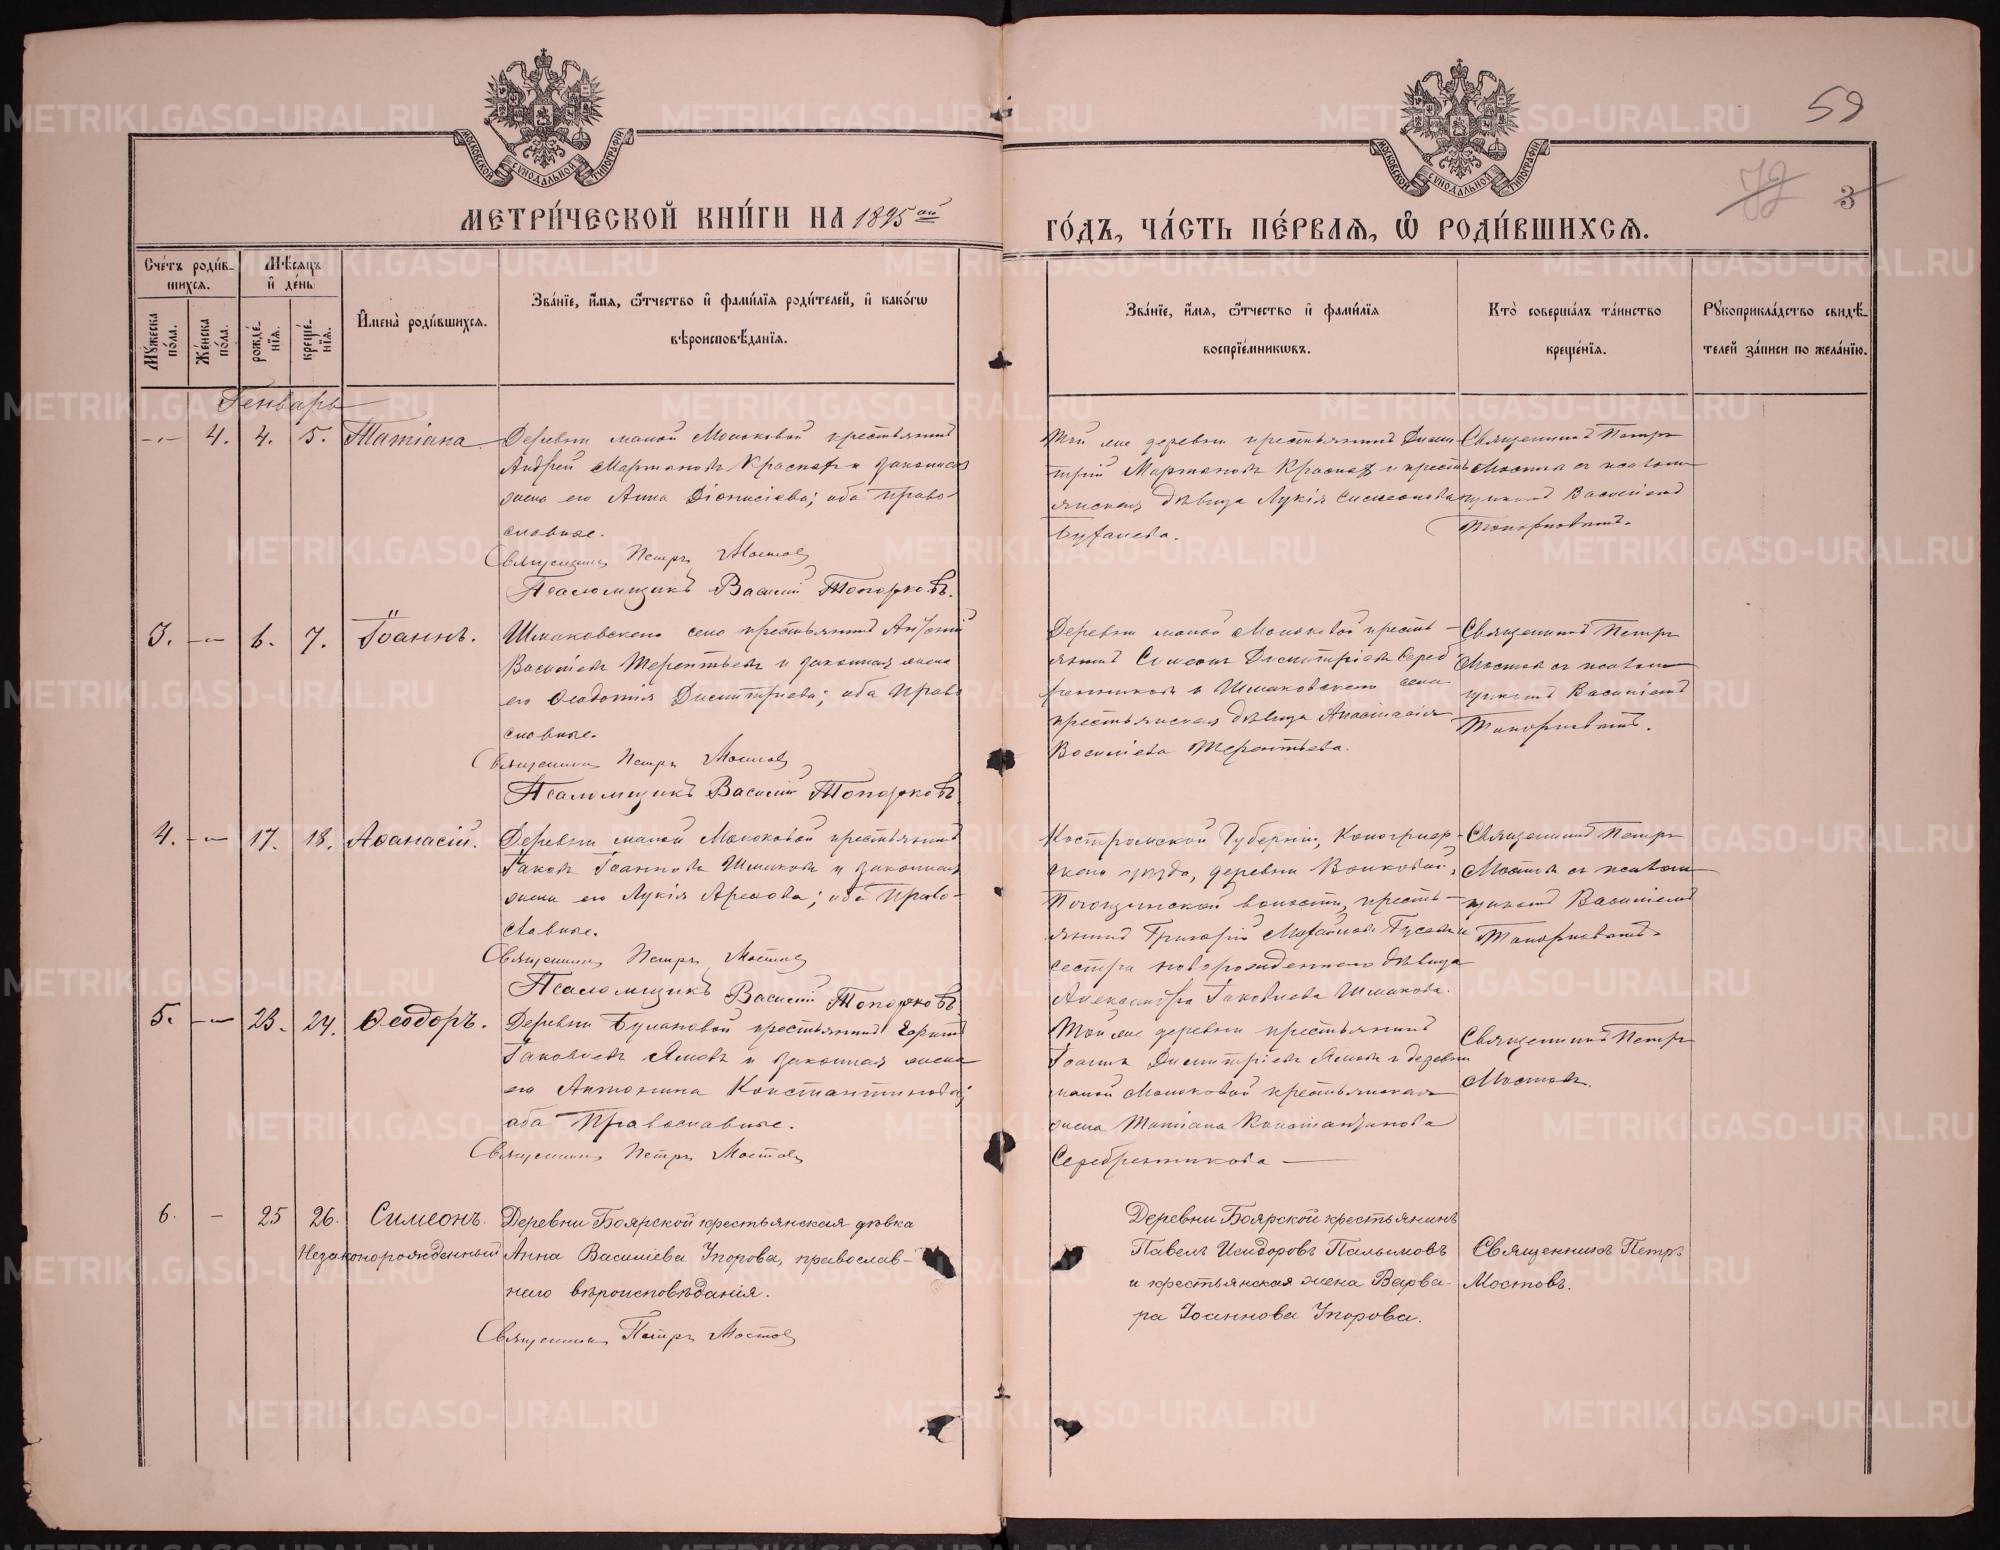 59
72 3
МОСКОВСКОЙ СѴНОДАЛЬНОЙ ТИПОГРАФІИ
МОСКОВСКОЙ СѴНОДАЛЬНОЙ ТИПОГРАФІИ
МЕТРИ́ЧЕСКОЙ КНИ́ГИ НА 1895 ый
ГО́ДЪ, ЧА́СТЬ ПЕ́РВАѦ, Ѽ РОДИ́ВШИХСѦ.
Сче́тъ роди́в-
шихсѧ.
Мѣсѧцъ
и́ де́нь
Мꙋ́жеска по́ла.
Же́нска по́ла.
рожде́нїѧ.
креще́нїѧ.
И҆мена̀ роди́вшихсѧ.
Зва́нїе, и҆́мѧ, ѻ҆́тчество и҆ фами́лїѧ роди́телей, и҆ како́гѡ
вѣроисповѣ́данїѧ.
Зва́нїе, и҆́мѧ, ѻ҆́тчество и҆ фами́лїѧ
воспрїе́мникѡвъ.
Кто̀ соверша́лъ та́инство
креще́нїѧ.
Рꙋкоприкла́дство свидѣ́-
телей за́писи по жела́нїю.
Генварь
-„- 4. 4. 5. Татіана
Деревни малой Молоковой крестьянинъ
Андрей Мартиановъ Красноf и законная
жена его Анна Діонисіева; оба Право-
славные.
Священникъ Петръ Мостовъ
Псаломщикъ Василій Топорковъ.
Той же деревни крестьянинъ Дими-
трій Мартиановъ и кресть
янская дѣвица Лукія Симеонова
Священникъ Петръ
Мостовъ съ псалом
щикомъ Василіемъ
Топорковымъ.
3. -„- 6. 7. Іоаннъ.
Шмаковскаго села крестьянинъ Антоній
Василіевъ Терентьевъ и законная жена
его Ѳеодотія Димитріева; оба Право
славные.
Священникъ Петръ Мостовъ
Псаломщикъ Василій Топорковъ
Деревни малой Молоковой кресть-
янинъ Симеонъ Димитріевъ Сереб
ренниковъ и Шмаковскаго села
крестьянская дѣвица Анастасія
Василіева Терентьева.
Священникъ Петръ
Мостовъ съ псалом
щикомъ Василіемъ
Топорковымъ.
4. -„- 17. 18. Аѳанасій.
Деревни малой Молоковой крестьянинъ
Іаковъ Іоанновъ Шмаковъ и законная
жена его Лукія; оба Право-
славные.
Священникъ Петръ Мостовъ
Псаломщикъ Василій Топорковъ.
Костромской Губерніи, Кологрив-
скаго уѣзда, деревни
волости, кресть-
янинъ Григорій Михайловъ Гусевъ и
сестра новорожденнаго дѣвица
Александра Іаковлева Шмакова.
Священникъ Петръ
Мостовъ съ псалом
щикомъ Василіемъ
Топорковымъ.
5. -„- 23. 24. Ѳеодоръ.
Деревни Булановой крестьянинъ
Іаковлевъ Ямовъ и законная жена
его Антонина Константинова;
оба Православные.
Священникъ Петръ Мостовъ
Той же деревни крестьянинъ
Іоаннъ Димитріевъ Ямовъ и деревни
малой Молоковой крестьянская
жена Татіана Константинова
Серебренникова —
Священникъ Петръ
Мостовъ.
6. - 25 26. Симеонъ.
Незаконорожденный
Деревни Боярской крестьянская дѣвка
Анна Василіева Упорова, православ-
наго вѣроисповѣданія.
Священникъ Петръ Мостовъ
Деревни Боярской крестьянинъ
Павелъ Исидоровъ Пальимовъ
и крестьянская жена Варва-
ра Іоаннова Упорова.
Священникъ Петръ
Мостовъ.
METRIKI.GASO-URAL.RU